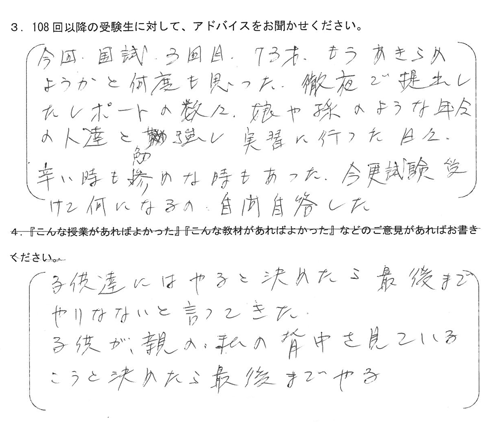 3．108回以降の受験生に対して、アドバイスをお聞かせください。
今回、国試、3回目、73才、もうあきらめ
ようかと何度も思った。徹夜で提出し
たレポートの数々、娘や孫のような年令
の人達と勉強し実習に行った日々、
辛い時も惨めな時もあった。今更試験受
けて何になるの、自問自答した
4．『こんな授業があればよかった』『こんな教材があればよかった』などのご意見があればお書き
ください。
子供達にはやると決めたら最後まで
やりなさいと言ってきた。
子供が、親の、私の背中を見ている
こうと決めたら最後までやる